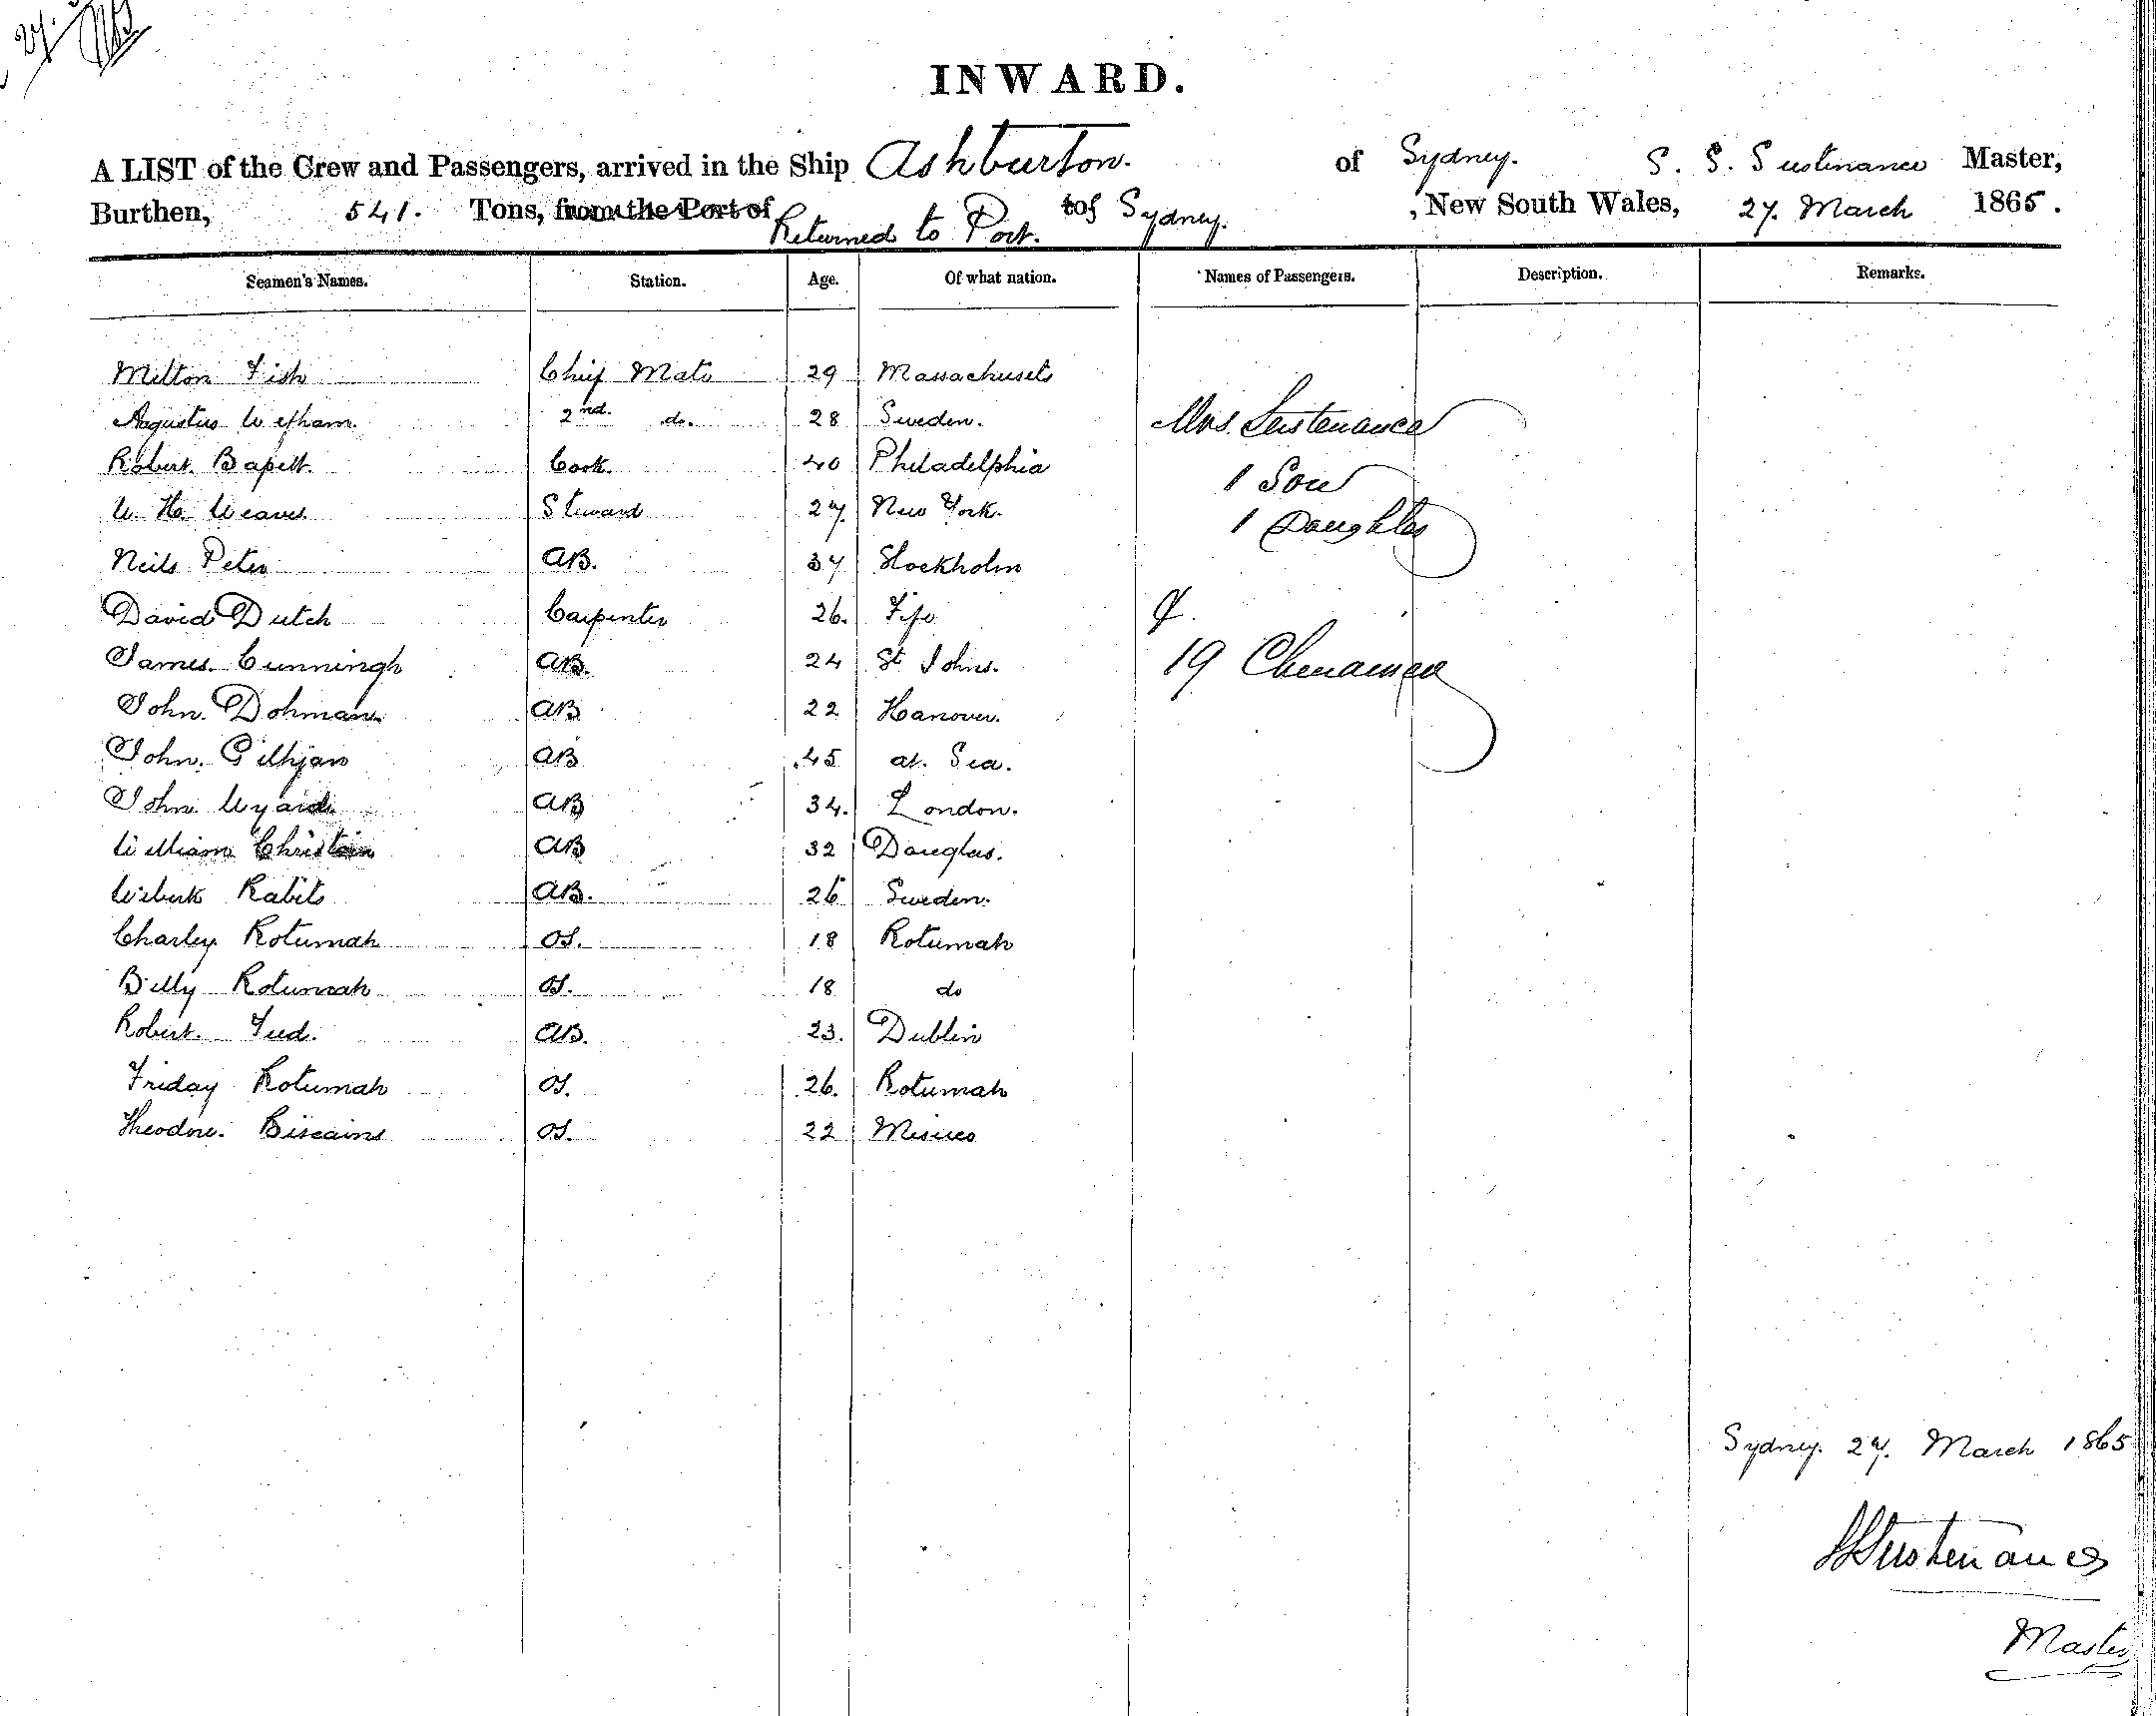 27.
INWARD.
A LIST of the Crew and Passengers, arrived in the Ship Ashburton. of Sydney. S. S. Sustinance Master,
Burthen, 541. Tons, from the Port of Returned to Port. to of Sydney. , New South Wales, 27. March 1865.
Seamen's Names. Station. Age. Of what nation. Names of Passengers. Description. Remarks.
Milton Fish Chief Mate 29 Massachusets
Augustus 2nd. do. 28 Sweden. Mrs. Sustenance
Robert Bapett Cook. 40 Philadelphia 1 Son
W. H. Weaver Steward 27. New York. 1 Daughter
Neils Peter AB. 37 Stockholm
David Dutch Carpenter 26. Fife &
James Cunningh AB. 24 St Johns. 19 Chinamen
John Dohman AB 22 Hanover.
John AB 45 at Sea.
John Wyard AB 34. London.
William Christain AB 32 Douglas.
Rabits AB. 26 Sweden.
Charley Rotumah OS. 18 Rotumah
Billy Rotumah OS. 18 do
Robert AB. 23. Dublin
Friday Rotumah OS. 26. Rotumah
Theodore OS. 22
Sydney. 27. March 1865
S S Sustenance
Master